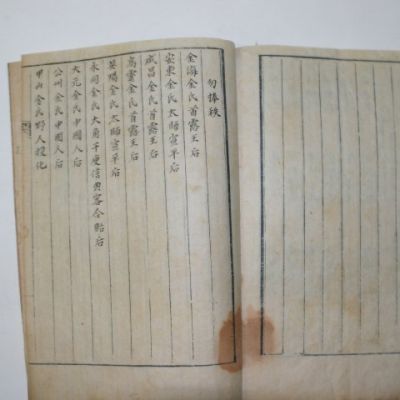 勿捧秩
金海金氏首露王后
安東金氏太師宣平后
咸昌金氏首露王后
高靈金氏首露王后
晏陽金氏太師宣平后
永同金氏大角干庾信典客令貽后
大元金氏中國人后
公州金氏中國人后
甲山金氏野人投化